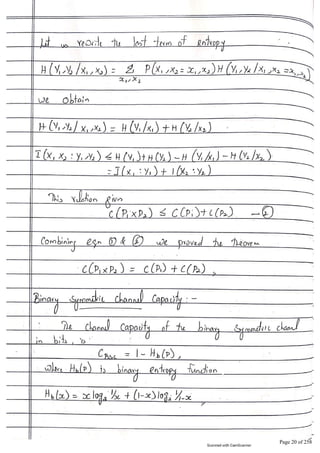 Let us rewrite the last term of entropy
H(Y₁,Y₂/X₁,X₂) = Σ P(X₁,X₂ = x₁,x₂) H(Y₁,Y₂/X₁,X₂ = x₁,x₂)
x₁,x₂
we obtain
H(Y₁,Y₂/X₁,X₂) = H(Y₁/X₁) + H(Y₂/X₂)
I(X₁X₂ : Y₁,Y₂) ≤ H(Y₁) + H(Y₂) - H(Y₁/X₁) - H(Y₂/X₂)
= I(X₁ : Y₁) + I(X₂ : Y₂)
This relation gives
C(P₁×P₂) ≤ C(P₁) + C(P₂) — ②
Combining eqn ① & ② we proved the theorem
C(P₁×P₂) = C(P₁) + C(P₂)
Binary Symmetric Channel Capacity :-
The Channel Capacity of the binary Symmetric channel
in bits, is
= 1 - H_b(P),
where H_b(P) is binary entropy function
H_b(x) = x log₂ 1/x + (1-x) log₂ 1/1-x
Scanned with CamScanner
Page 20 of 258